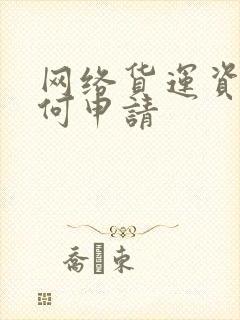 网络货運資
何申請
喬 束